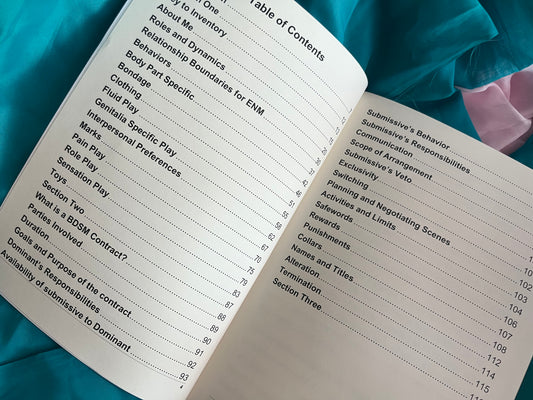 Table of Contents
One
to Inventory
About Me
Roles and Dynamics
Relationship Boundaries for ENM
Behaviors
Body Part Specific
Bondage
Clothing
Fluid Play
Genitalia Specific Play
Interpersonal Preferences
Marks
Pain Play
Role Play
Sensation Play
Toys
Section Two
What is a BDSM Contract?
Parties Involved
Duration
Goals and Purpose of the contract
Dominant's Responsibilities
Availability of submissive to Dominant
42
46
51
55
58
62
67
70
75
79
83
87
88
89
90
91
92
93
Submissive's Behavior
Submissive's Responsibilities
Communication
Scope of Arrangement
Submissive's Veto
Exclusivity
Switching
Planning and Negotiating Scenes
Activities and Limits
Safewords
Rewards
Punishments
Collars
Names and Titles
Alteration
Termination
Section Three
102
103
104
106
107
108
112
114
115